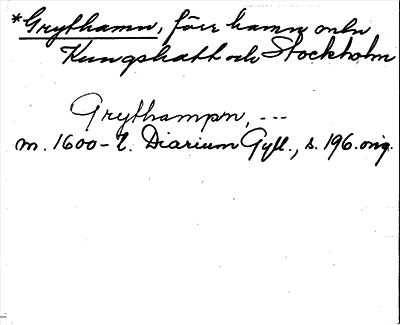 *Grythamn, förr hamn mln
Kungshatt och Stockholm
Grythampn, ---
m. 1600-t. Diarium Gyll., s. 196. orig.